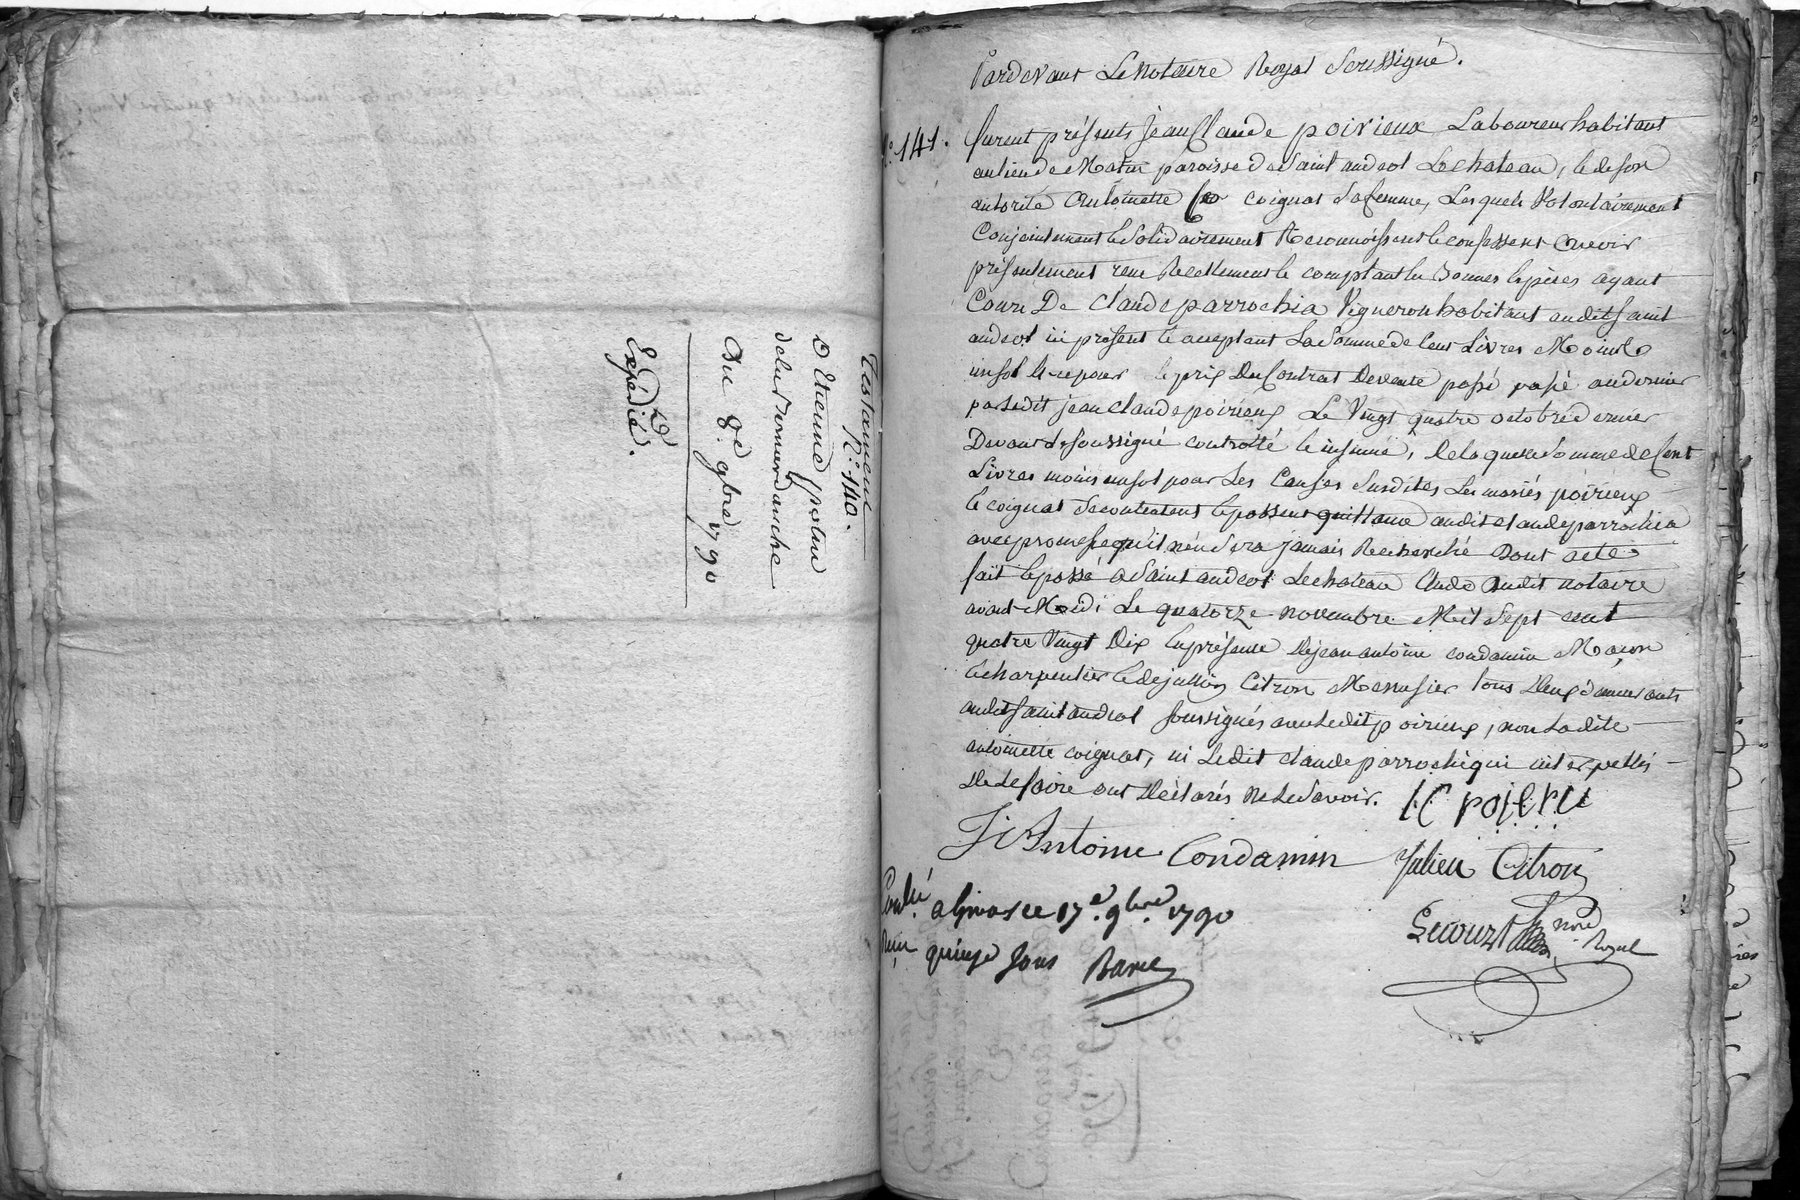 Testament
N.° 140.
D Etienne
de la Bonnardanche
Du 8.e 9bre 1790
Expédié.
Pardevant Le notaire Royal Soussigné.
N.° 141. furent présents jean Claude poirieux Laboureur habitant
au lieu de paroisse de Saint andeol Le chateau, & de son
autorité Antoinette coignat Sa femme, Lesquels Volontairement
Conjointement & Solidairement Reconnoissent & confessent avoir
présentement reçu Reellement & comptant en Bonnes Espèces ayant
Cours De Claude parrochia Vigneron habitant audit saint
andeol ici présent & acceptant La Somme de Cent Livres Moins
un sol & ce pour le prix Du Contrat De vente passé passé au dernier
par Ledit jean Claude poirieux Le Vingt quatre octobre dernier
Devant Le soussigné controllé & insinué, De la quelle Somme de Cent
Livres moins un sol pour Les Causes Susdites Les mariés poirieux
& coignat Se contentent & passent quittance audit Claude parrochia
avec promesse qu'il n'en Sera jamais Recherché Dont acte
fait & passé a Saint andeol Le chateau Etude dudit notaire
avant Midi Le quatorze novembre Mil Sept cent
quatre Vingt Dix En présence De jean antoine condamin Maçon
& charpentier & de jullien Citron Menusier tous Deux demeurants
audit saint andeol soussignés avec Ledit poirieux, non Ladite
antoinette coignat, ni Ledit Claude parrochi qui interpellés
De Le faire ont Déclarés ne Le Savoir. IC poierie
Ji Antoine Condamin Julien Citron
Conlé a Givors ce 17.e 9bre. 1790
Reçu quinze Sous
Lecourt nore Royal